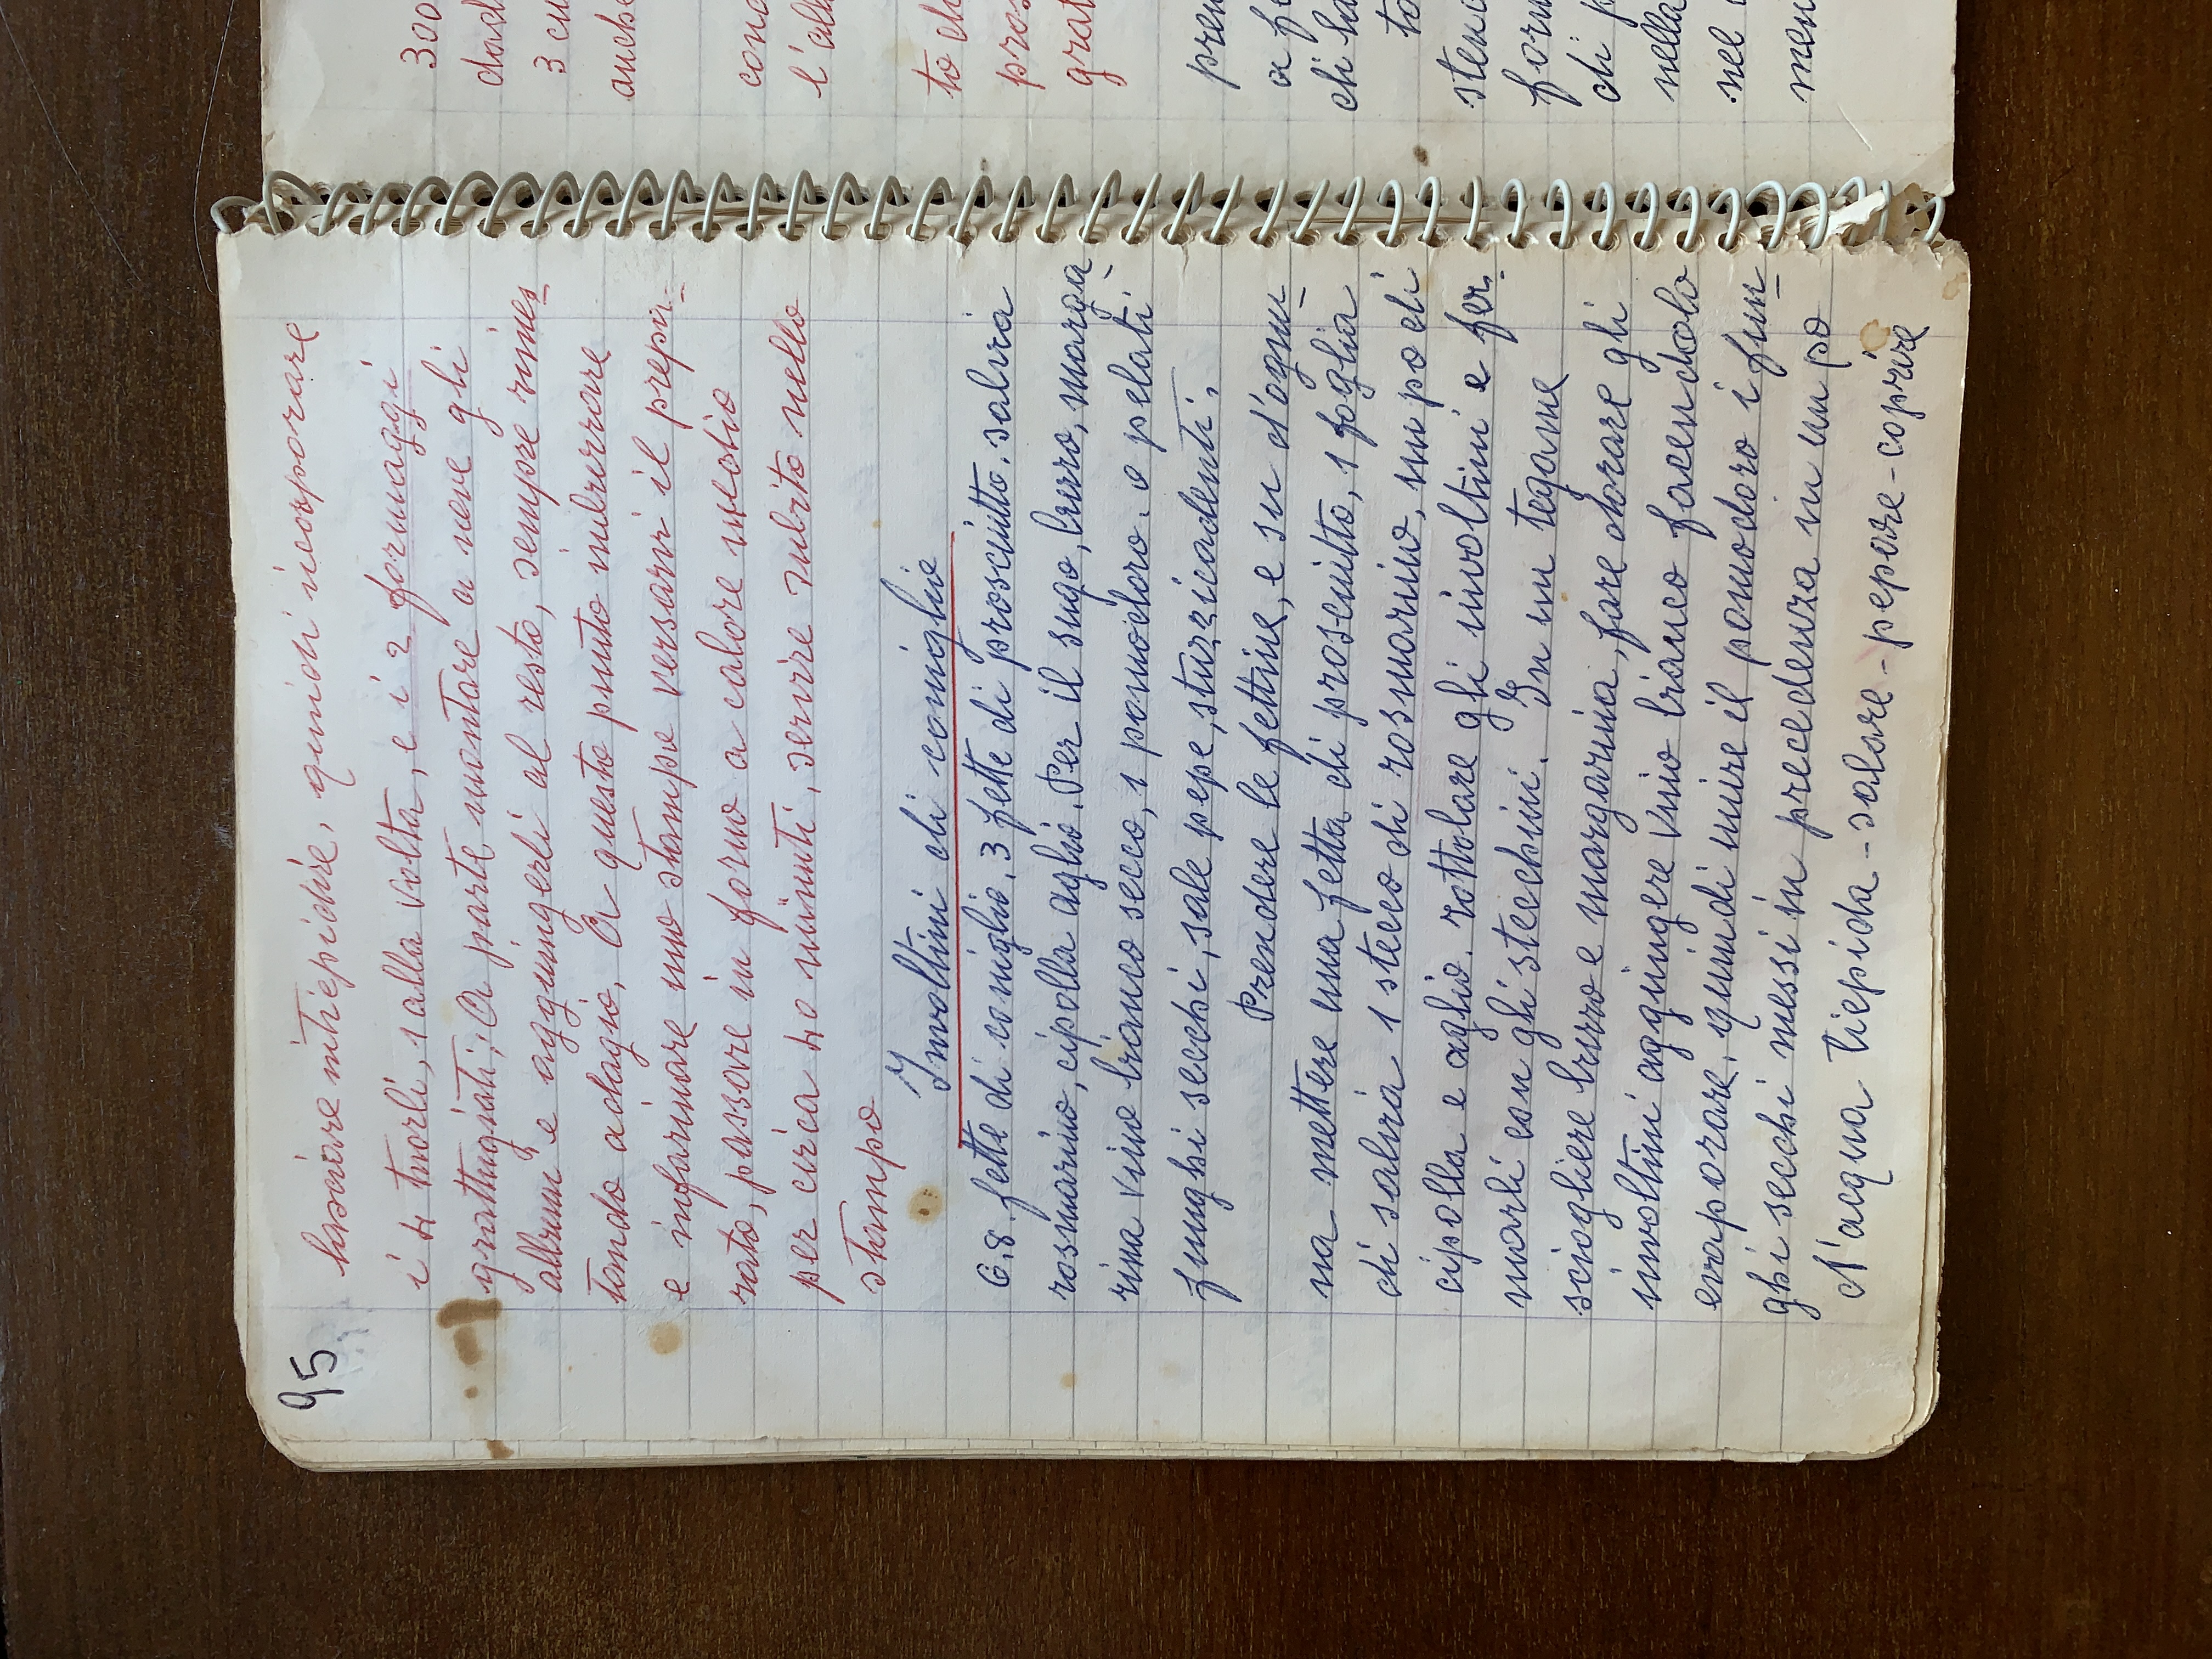 95
lasciare intiepidire, quindi icorporare
i 4 tuorli, 1 alla volta, e i 2 formaggi
grattugiati; A parte montare a neve gli
albumi e aggiungerli al resto, sempre rimes
tando adagio. A questo punto imburrare
e infarinare uno stampo versarvi il prepa-
rato, passare in forno a calore medio
per circa 40 minuti, servire subito nello
stampo
Involtini di coniglio
6.8. fette di coniglio. 3 fette di prosciutto. salvia
rosmarino, cipolla aglio. Per il sugo, burro, marga
rina vino bianco secco, 1 pomodoro. o pelati
funghi secchi, sale pepe, stuzzicadenti.
Prendere le fettine, e su d'ognu
na mettere una fetta di prosciutto, 1 foglia
di salvia 1 stecco di rosmarino, un po di
cipolla e aglio. rottolare gli involtini e fer
marli con gli stecchini. In un tegame
sciogliere burro e margarina, fare dorare gli
involtini aggiungere vino bianco facendolo
evaporare, quindi unire il pomodoro i fun
ghi secchi messi in precedenza in un po
d'acqua tiepida - salare - pepare - coprire
300
dad
3 cu
anche
cond
l'alb
to di
pros
grat
pren
a fe
di la
to
sten
forn
di p
nella
nel
men